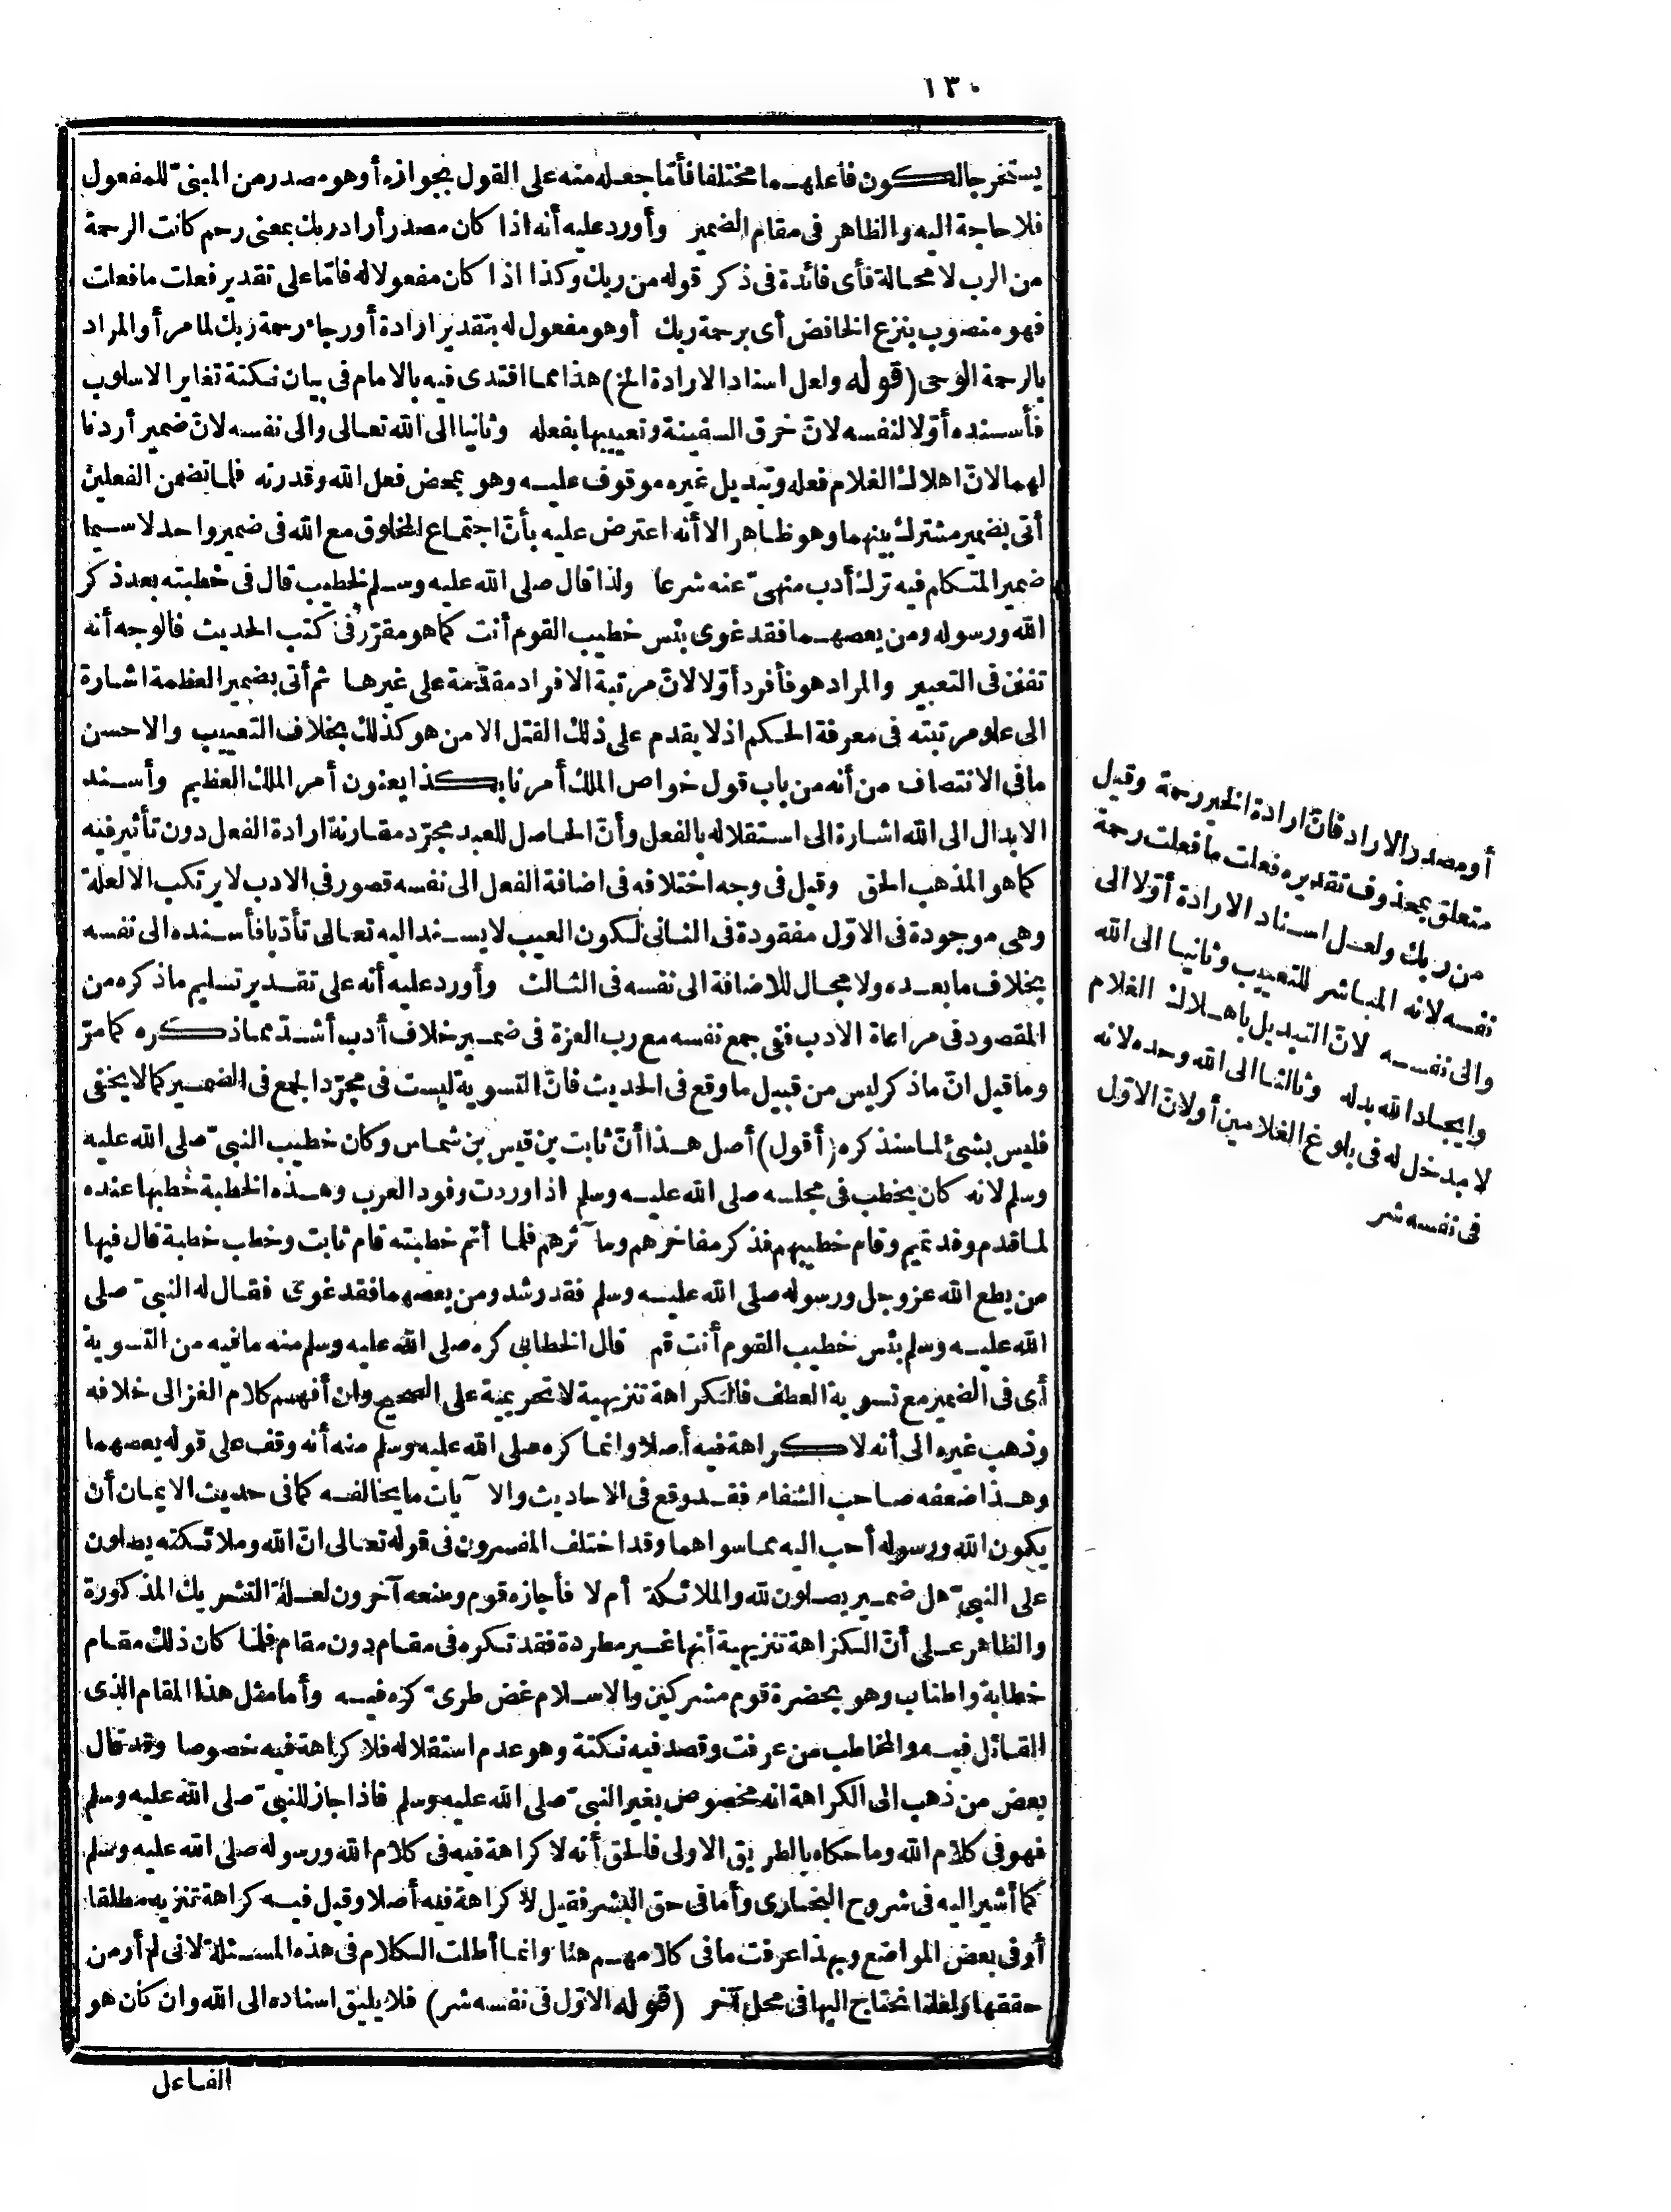 ١٣٠
يستخرجا لكون فاعلهما مختلفا فأما جعله منه على القول بجوازه أو هو مصدر من المبنىّ للمفعول
فلا حاجة اليه والظاهر فى مقام الضمير وأورد عليه أنه اذا كان مصدر أراد ربك بمعنى رحم كانت الرحمة
من الرب لا محالة فأى فائدة فى ذكر قوله من ربك وكذا اذا كان مفعولا له فامّا على تقدير فعلت ما فعلت
فهو منصوب بنزع الخافض أى برحمة ربك أو هو مفعول له بتقدير ارادة أو رجاء رحمة ربك لما مر أو المراد
بالرحمة الوحى (قوله ولعل اسناد الارادة الخ) هذا مما اقتدى فيه بالامام فى بيان نكتة تغاير الاسلوب
فأسنده أوّلا لنفسه لانّ خرق السفينة وتعييبها بفعله وثانيا الى الله تعالى والى نفسه لانّ ضمير أردنا
لهما لانّ اهلاك الغلام فعله وتبديل غيره موقوف عليه وهو بمحض فعل الله وقدرته فلما تضمن الفعلين
أتى بضمير مشترك بينهما وهو ظاهر الا أنه اعترض عليه بأنّ اجتماع المخلوق مع الله فى ضمير واحد لا سيما
ضمير المتكلم فيه ترك أدب منهىّ عنه شرعا ولذا قال صلى الله عليه وسلم لخطيب قال فى خطبته بعد ذكر
الله ورسوله ومن يعصهما فقد غوى بئس خطيب القوم أنت كما هو مقرّر فى كتب الحديث فالوجه أنه
تفنن فى التعبير والمراد هو فأفرد أوّلا لانّ مرتبة الافراد مقدّمة على غيرها ثم أتى بضمير العظمة اشارة
الى علو مرتبته فى معرفة الحكم اذ لا يقدم على ذلك القتل الا من هو كذلك بخلاف التعييب والاحسن
ما فى الانتصاف من أنه من باب قول خواص الملك أمرنا بكذا يعنون أمر الملك العظيم وأسند
الابدال الى الله اشارة الى استقلاله بالفعل وأنّ الحاصل للعبد مجرّد مقارنة ارادة الفعل دون تأثير فيه
كما هو المذهب الحق وقيل فى وجه اختلافه فى اضافة الفعل الى نفسه قصور فى الادب لا يرتكب الا لعلة
وهى موجودة فى الاوّل مفقودة فى الثانى لكون العيب لا يسند اليه تعالى تأدّبا فأسنده الى نفسه
بخلاف ما بعده ولا مجال للاضافة الى نفسه فى الثالث وأورد عليه أنه على تقدير تسليم ما ذكره من
المقصود فى مراعاة الادب ففى جمع نفسه مع رب العزة فى ضمير خلاف أدب أشدّ مما ذكره كما مرّ
وما قيل انّ ما ذكر ليس من قبيل ما وقع فى الحديث فانّ التسوية ليست فى مجرّد الجمع فى الضمير كما لا يخفى
فليس بشئ لما سنذكره (أقول) أصل هذا أنّ ثابت بن قيس بن شماس وكان خطيب النبىّ صلى الله عليه
وسلم لانه كان يخطب فى مجلسه صلى الله عليه وسلم اذا وردت وفود العرب وهذه الخطبة خطبها عنده
لما قدم وفد تميم وقام خطيبهم فذكر مفاخرهم ومآثرهم فلما أتم خطبته قام ثابت وخطب خطبة قال فيها
من يطع الله عز وجل ورسوله صلى الله عليه وسلم فقد رشد ومن يعصهما فقد غوى فقال له النبىّ صلى
الله عليه وسلم بئس خطيب القوم أنت قم قال الخطابى كره صلى الله عليه وسلم منه ما فيه من التسوية
أى فى الضمير مع تسوية العطف فالكراهة تنزيهية لا تحريمية على الصحيح وان أفهم كلام الغزالى خلافه
وذهب غيره الى أنه لا كراهة فيه أصلا وانما كره صلى الله عليه وسلم منه أنه وقف على قوله يعصهما
وهذا ضعفه صاحب الشفاء فقد وقع فى الاحاديث والآيات ما يخالفه كما فى حديث الايمان أن
يكون الله ورسوله أحب اليه مما سواهما وقد اختلف المفسرون فى قوله تعالى انّ الله وملائكته يصلون
على النبىّ هل ضمير يصلون لله والملائكة أم لا فأجازه قوم ومنعه آخرون لعلة التشريك المذكورة
والظاهر على أنّ الكراهة تنزيهية أنها غير مطردة فقد تكره فى مقام دون مقام فلما كان ذلك مقام
خطابة واطناب وهو بحضرة قوم مشركين والاسلام غض طرىّ كره فيه وأما مثل هذا المقام الذى
القائل فيه والمخاطب من عرفت وقصد فيه نكتة وهو عدم استقلاله فلا كراهة فيه خصوصا وقد قال
بعض من ذهب الى الكراهة انه مخصوص بغير النبىّ صلى الله عليه وسلم فاذا جاز للنبىّ صلى الله عليه وسلم
فهو فى كلام الله وما حكاه بالطريق الاولى فالحق أنه لا كراهة فيه فى كلام الله ورسوله صلى الله عليه وسلم
كما أشير اليه فى شروح البخارى وأما فى حق البشر فقيل لا كراهة فيه أصلا وقيل فيه كراهة تنزيه مطلقا
أو فى بعض المواضع وبهذا عرفت ما فى كلامهم هنا وانما أطلت الكلام فى هذه المسئلة لانى لم أر من
حققها ولعلنا نحتاج اليها فى محل آخر (قوله الاوّل فى نفسه شر) فلا يليق اسناده الى الله وان كان هو
الفاعل
أو مصدر لاراد فانّ ارادة الخير رحمة وقيل
متعلق بمحذوف تقديره فعلت ما فعلت رحمة
من ربك ولعل اسناد الارادة أوّلا الى
نفسه لانه المباشر للتعييب وثانيا الى الله
والى نفسه لانّ التبديل باهلاك الغلام
وايجاد الله بدله وثالثا الى الله وحده لانه
لا مدخل له فى بلوغ الغلامين أو لانّ الاوّل
فى نفسه شر